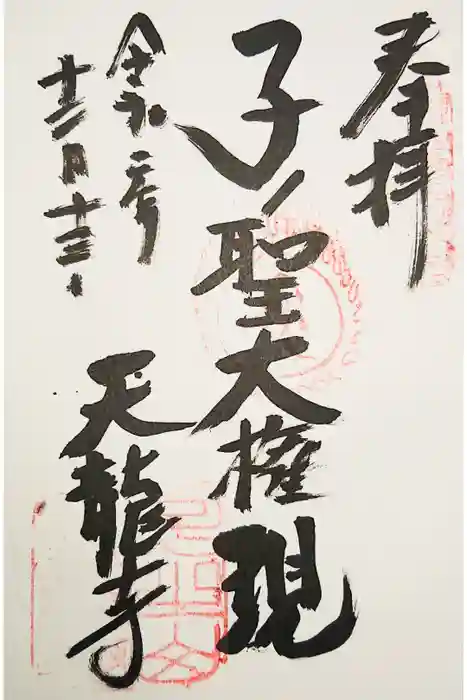 奉拝
子ノ聖大権現
令和二年
十二月十三日
天龍寺